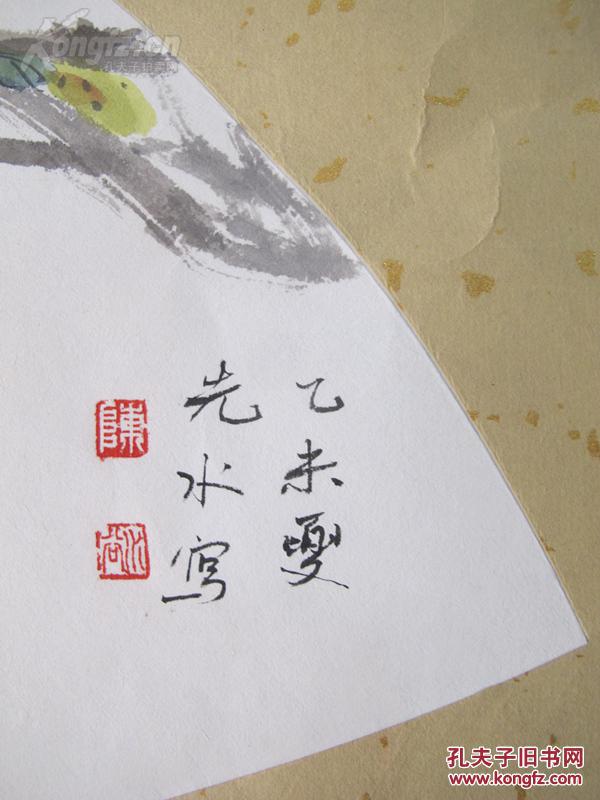 Kongfz.cn
孔夫子拍卖网
乙未夏
先水写
陳
孔夫子旧书网
www.kongfz.com